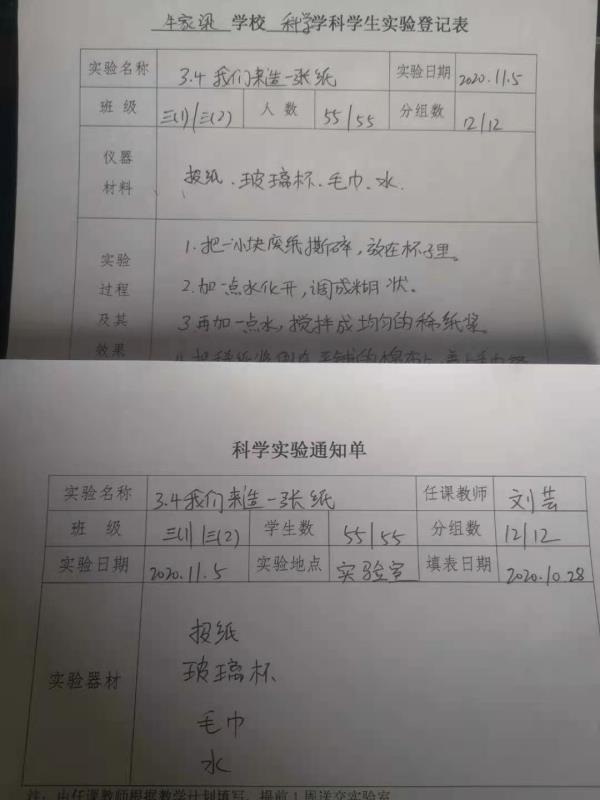 牛家梁 学校 科学 学科学生实验登记表
实验名称 3.4 我们来造一张纸 实验日期 2020.11.5
班 级 三(1)/三(2) 人 数 55/55 分组数 12/12
仪器材料 报纸、玻璃杯、毛巾、水.
实验过程及其效果
1.把一小块废纸撕碎，放在杯子里。
2.加一点水化开，调成糊状。
3.再加一点水，搅拌成均匀的稀纸浆
科学实验通知单
实验名称 3.4我们来造一张纸 任课教师 刘芸
班 级 三(1) 三(2) 学生数 55/55 分组数 12/12
实验日期 2020.11.5 实验地点 实验室 填表日期 2020.10.28
实验器材
报纸
玻璃杯
毛巾
水
注：由任课教师根据教学计划填写，提前1周送交实验室